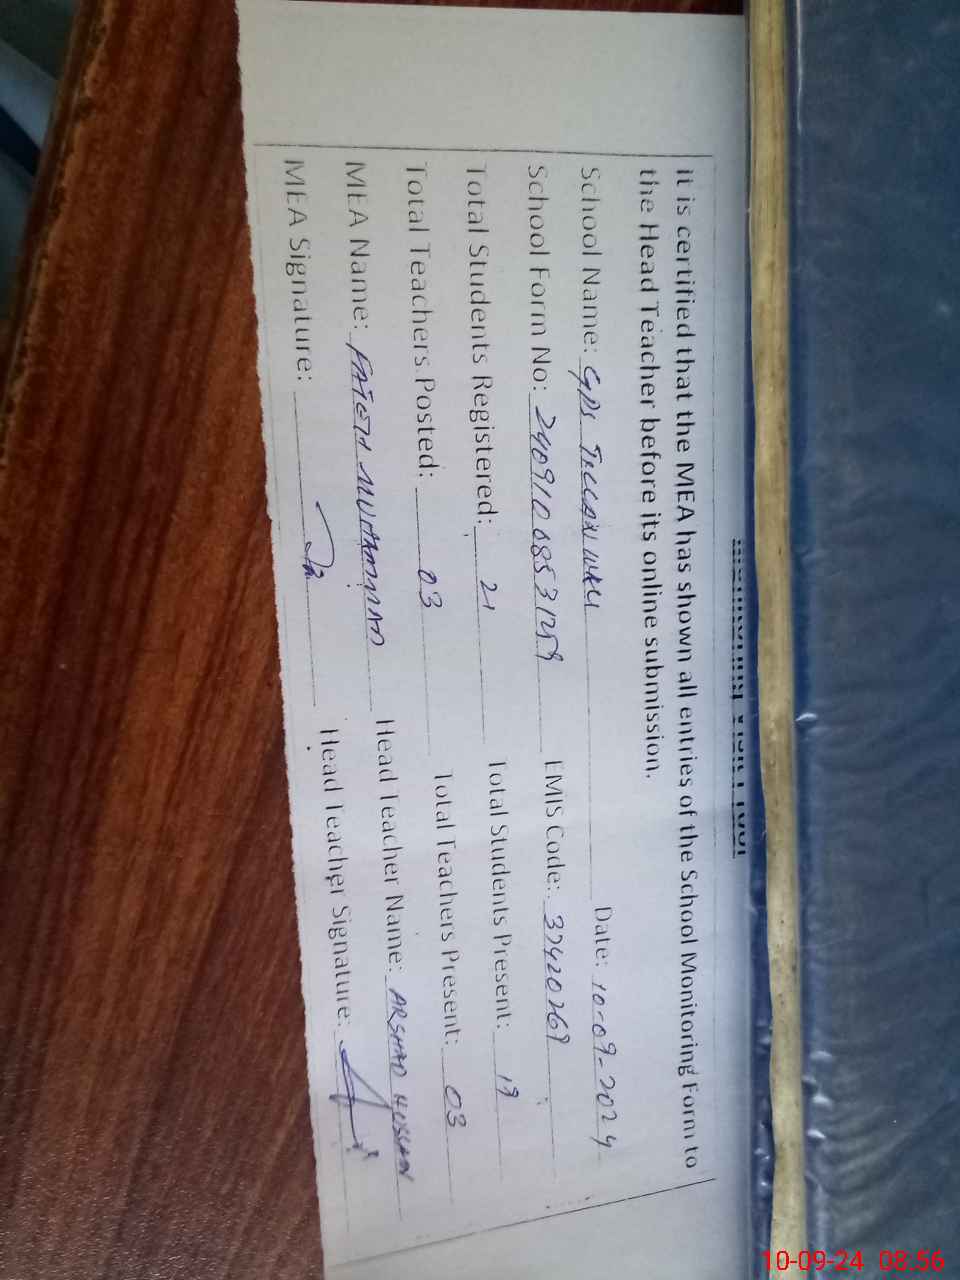 Monitoring Visit Proof
it is certified that the MEA has shown all entries of the School Monitoring Form to
the Head Teacher before its online submission.
School Name: GPS Date: 10-09-2024
School Form No: EMIS Code: 37420269
Total Students Registered: 21 Total Students Present: 19
Total Teachers Posted: 03 Total Teachers Present: 03
MEA Name: FATEH MUHAMMAD Head Teacher Name: ARSHAD HUSSAIN
MEA Signature: Head Teacher Signature:
10-09-24 08:56